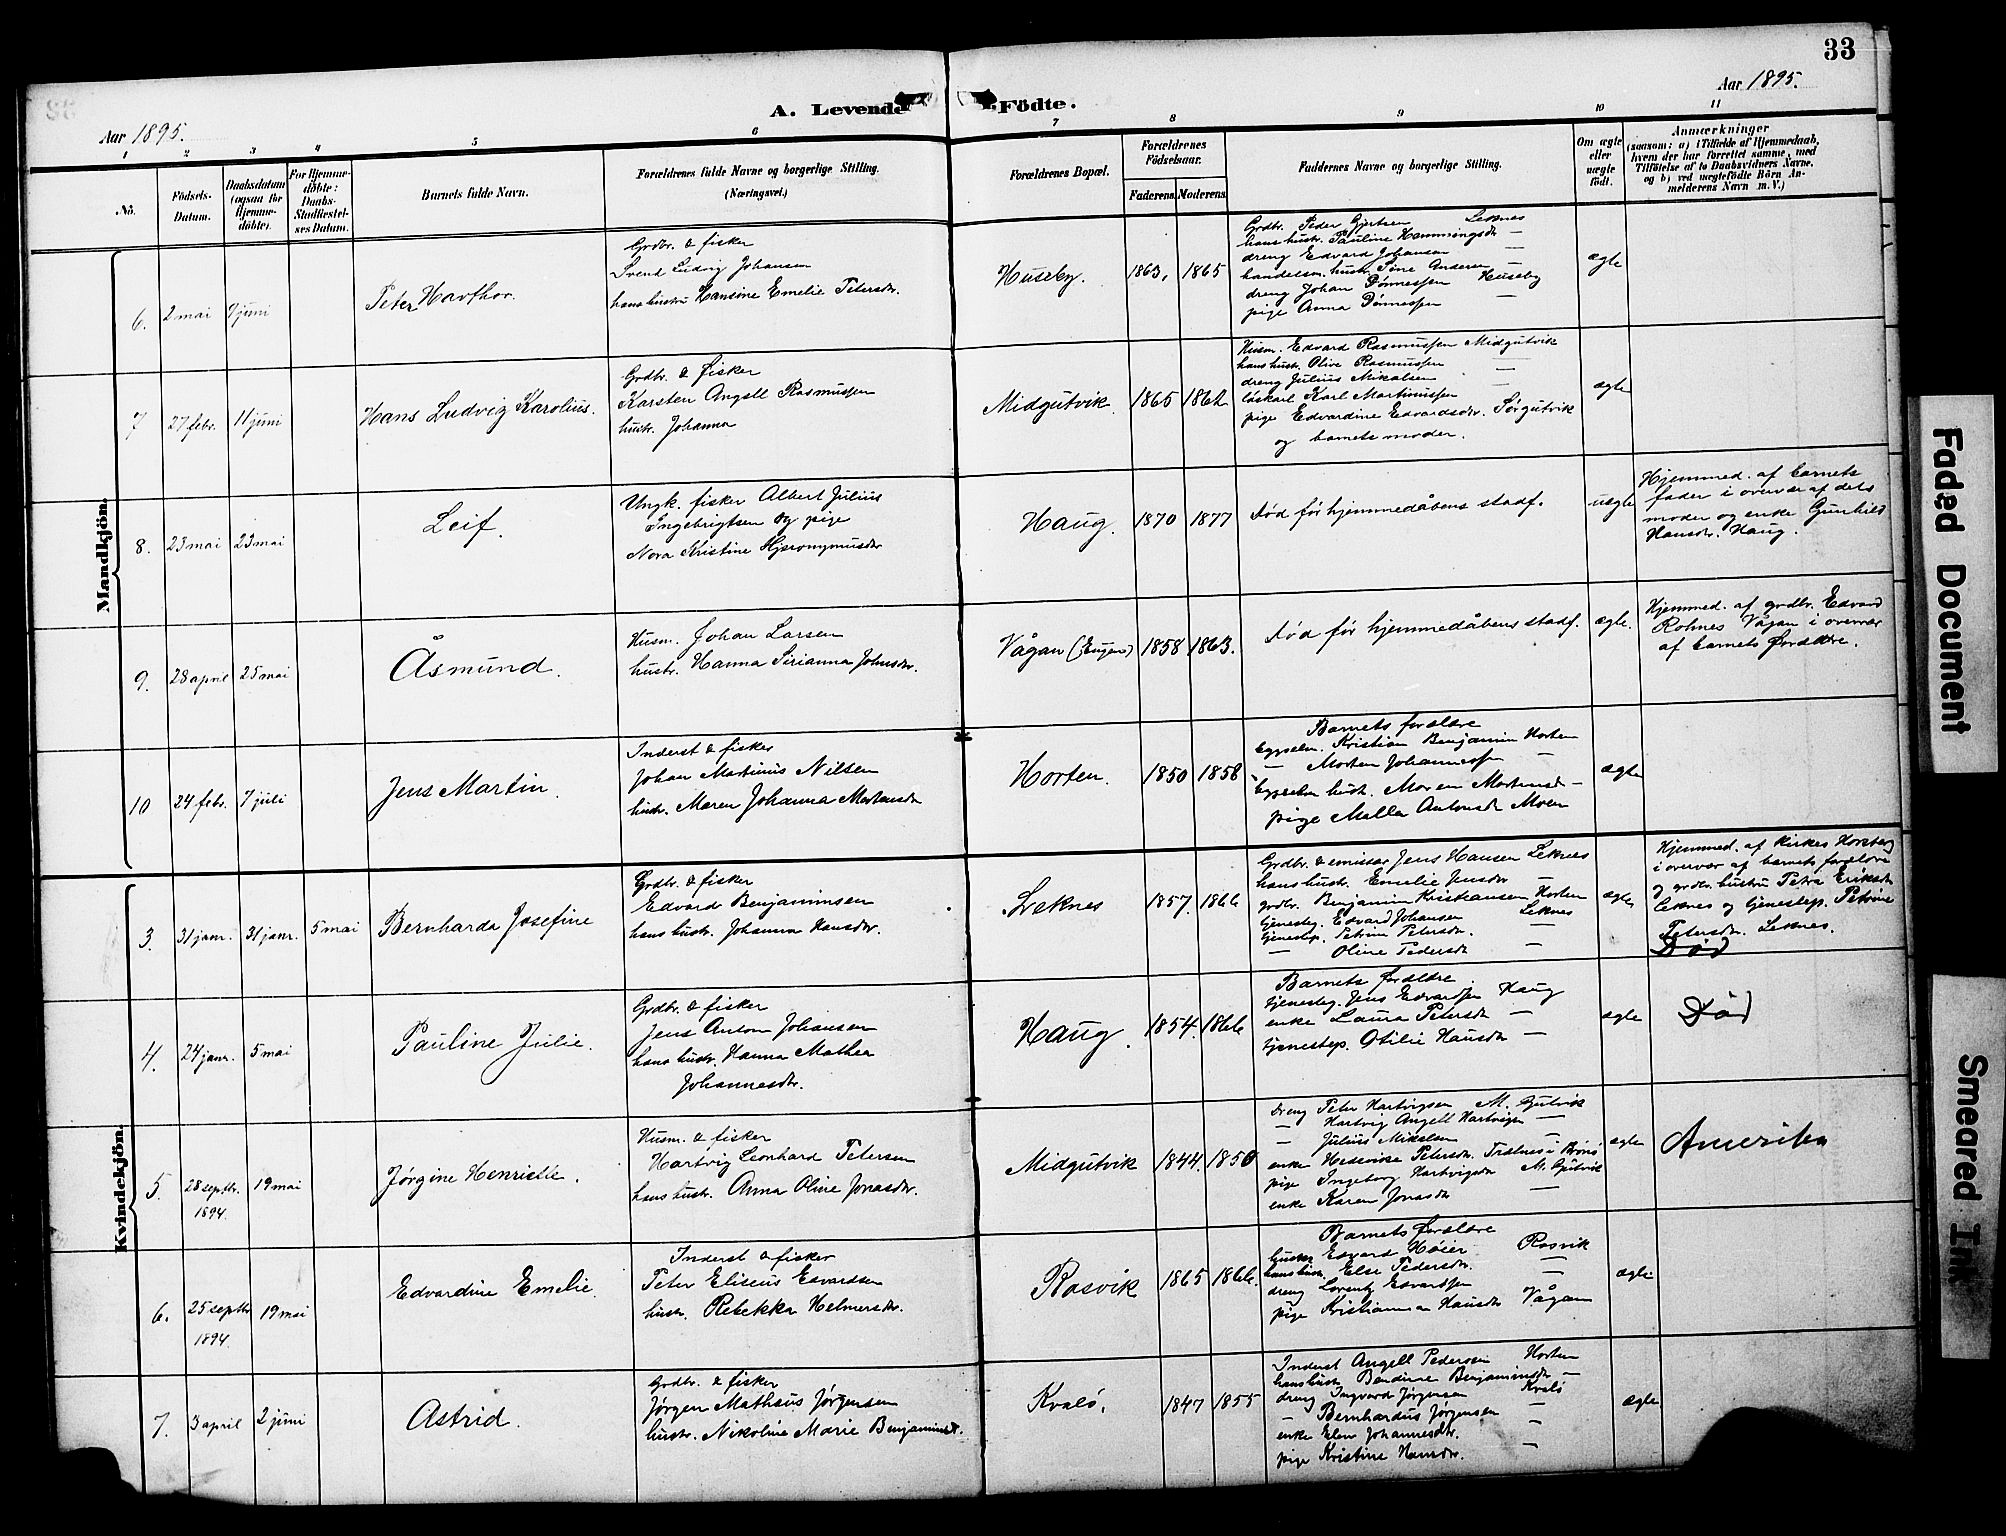 33
Aar 1895.
A. Levende Födte.
Aar 1895.
1 2 3 4 5 6 7 8 9 10 11
No.
Födsels-Datum.
Daabsdatum (ogsaa for Hjemme-döbte).
For Hjemme-döbte: Daabs-Stadfæstel-ses Datum.
Barnets fulde Navn.
Forældrenes fulde Navne og borgerlige Stilling.
(Næringsvei.)
Forældrenes Bopæl.
Forældrenes Födselsaar.
Faderens. Moderens.
Faddernes Navne og borgerlige Stilling.
Om ægte eller uægte födt.
Anmærkninger
(saasom: a) i Tilfælde af Hjemmedaab,
hvem der har forrettet samme, med
Tilföielse af to Daabsvidners Navne,
og b) ved uægtefödte Börn An-
melderens Navn m. V.)
Mandkjön.
6. 2 mai 9 juni
Peter Havthor.
Grdbr. & fisker
Svend Ludvig Johansen
hans hustru Hansine Emelie Petersdr.
Huseby. 1863, 1865
Grdbr. Peder Gjertsen Leknes
hans hustr. Pauline Hemmingsdr —
dreng Edvard Johansen —
handelsm. hustr. Sine Andersen —
dreng Johan Dönnessen Huseby
pige Anna Dönnessen —
ægte
7 27 febr. 11 juni
Hans Ludvig Karolius.
Grdbr. & fisker
Karsten Angell Rasmussen
hustr. Johanna
Midgutvik 1865 1862
Husm. Edvard Rasmussen Midgutvik
hans hustr. Olive Rasmussen —
dreng Julius Mikalsen —
löskarl Karl Martinussen
pige Edvardine Edvardsdr. Sörgutvik
og barnets moder.
ægte
8. 23 mai 23 mai
Leif.
Ungk. fisker Albert Julius
Ingebrigtsen og pige
Nora Kristine Hjeronymusdr
Haug. 1870 1877
Död för hjemmedåbens stadf.
uægte
Hjemmed. af barnets
fader i overvær af dets
moder og enke Gunhild
Hansdr. Haug.
9. 28 april 25 mai
Åsmund.
Husm. Johan Larsen
hustr. Hanna Sirianna Johnsdr.
Vågan (Engen) 1858 1863.
Död för hjemmedåbens stadf.
ægte.
Hjemmed. af grdbr. Edvard
Rohnes Vågan i overvær
af barnets forældre.
10 24 febr. 7 juli
Jens Martin.
Inderst & fisker
Johan Martinus Nilsen
hustr. Maren Johanna Mortensdr
Horten. 1850 1858
Barnets forældre
Kristian Benjamin Horten
— Morten Johannessen —
hust. Maren Mortensd —
pige Malla Antonsdr Moen
ægte
Kvindekjön.
3. 31 janr. 31 janr. 5 mai
Bernharda Josefine
Grdbr. & fisker
Edvard Benjaminsen
hans hustr. Johanna Hansdr.
Leknes 1857. 1866
Grdbr. & emissær Jens Hansen Leknes
hans hustr. Emelie Jensdr —
grdbr. Benjamin Kristiansen Horten
tjenesteg. Edvard Johansen Leknes
tjenestep. Petrine Petersdr. —
— Oline Pedersdr —
ægte
Hjemmed. af kirkes. Horsberg
i overvær af barnets forældre
og grdbr. hustru Petra Eriksdr
Leknes og tjenestep. Petrine
Petersdr. Leknes.
Död
4. 24 janr. 5 mai
Pauline Julie.
Grdbr. & fisker
Jens Anton Johansen
hans hustr. Hanna Mathea
Johannesdr.
Haug. 1854. 1866
Barnets forældre
tjenesteg. Jens Edvardsen Haug
enke Laura Petersdr —
tjenestep. Otilie Hansdr —
ægte
Död
5. 28 septbr. 1894. 19 mai
Jörgine Henriette.
Husm. & fisker
Hartvig Leonhard Petersen
hans hustr. Anna Oline Jonasdr.
Midgutvik 1844. 1850
dreng Peter Hartvigsen M. Gutvik
— Hartvig Angell Hartvigsen —
— Julius Mikalsen —
enke Hedevike Petersdr. Trælnes i Brönö
pige Ingeborg Hartvigsdr M. Gutvik
enke Karen Jonasdr —
ægte
Amerika
6. 25 septbr 1894. 19 mai
Edvardine Emelie.
Inderst & fisker
Peter Eliseus Edvardsen
hustr. Rebekka Helmersdr.
Rosvik 1865 1866.
Barnets forældre
Edvard Höier Rosvik
hans hustr. Else Pedersdr. —
dreng Lorentz Edvardsen —
pige Kristianna Hansdr Vågan
ægte
7. 3 april 2 juni
Astrid.
Grdbr. & fisker
Jörgen Mathæus Jörgensen
hustr. Nikoline Marie Benjaminsd.
Kvalö, 1847 1855
Inderst Angell Pedersen Horten
hans hustr. Bendine Benjaminsdr —
dreng Ingvard Jörgensen Kvalö
— Bernhardus Jörgensen —
enke Elen Johannesdr. —
pige Kristine Hansdr. —
ægte
Faded Document
Smeared Ink